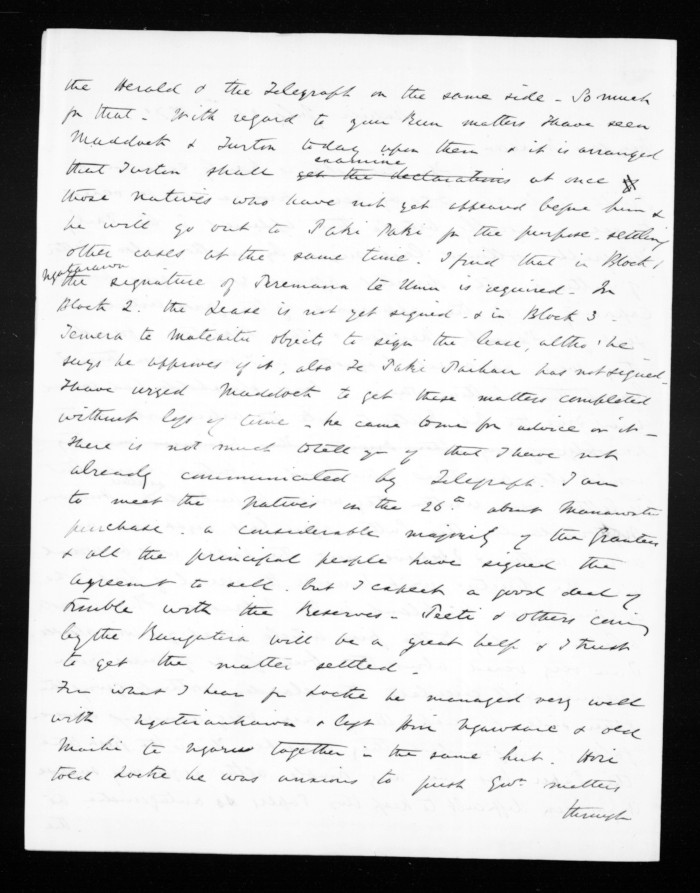 the Herald & the Telegraph on the same side - So much
for that - With regard to your Run matters I have seen
Maddock & Turton today upon them & it is arranged
that Turton shall get the declarations examine at once
those natives who have not yet appeared before him &
he will go out to Paki Paki for the purpose - settling
other cases at the same time. I find that in Block 1
Ngatarawa
the signature of Paremana te Umu is required - In
Block 2. the Lease is not yet signed. & in Block 3 -
Temera te objects to sign the lease, altho' he
says he approves of it, also Te Paki has not signed -
I have urged Maddock to get these matters completed
without loss of time - he came to me for advice on it -
There is not much to tell you of that I have not
already communicated by Telegraph. I am
to meet the Natives on the 26th about Manawatu
purchase. a considerable majority of the grantees
& all the principal people have signed the
agreement to sell. but I expect a good deal of
trouble with the Reserves - Peeti & others coming
by the Rangatira will be a great help & I trust
to get the matter settled -
Fm what I hear fm Locke he managed very well
with & left & old
te together in the same hut. Hori
told Locke he was anxious to push Govt. matters
through